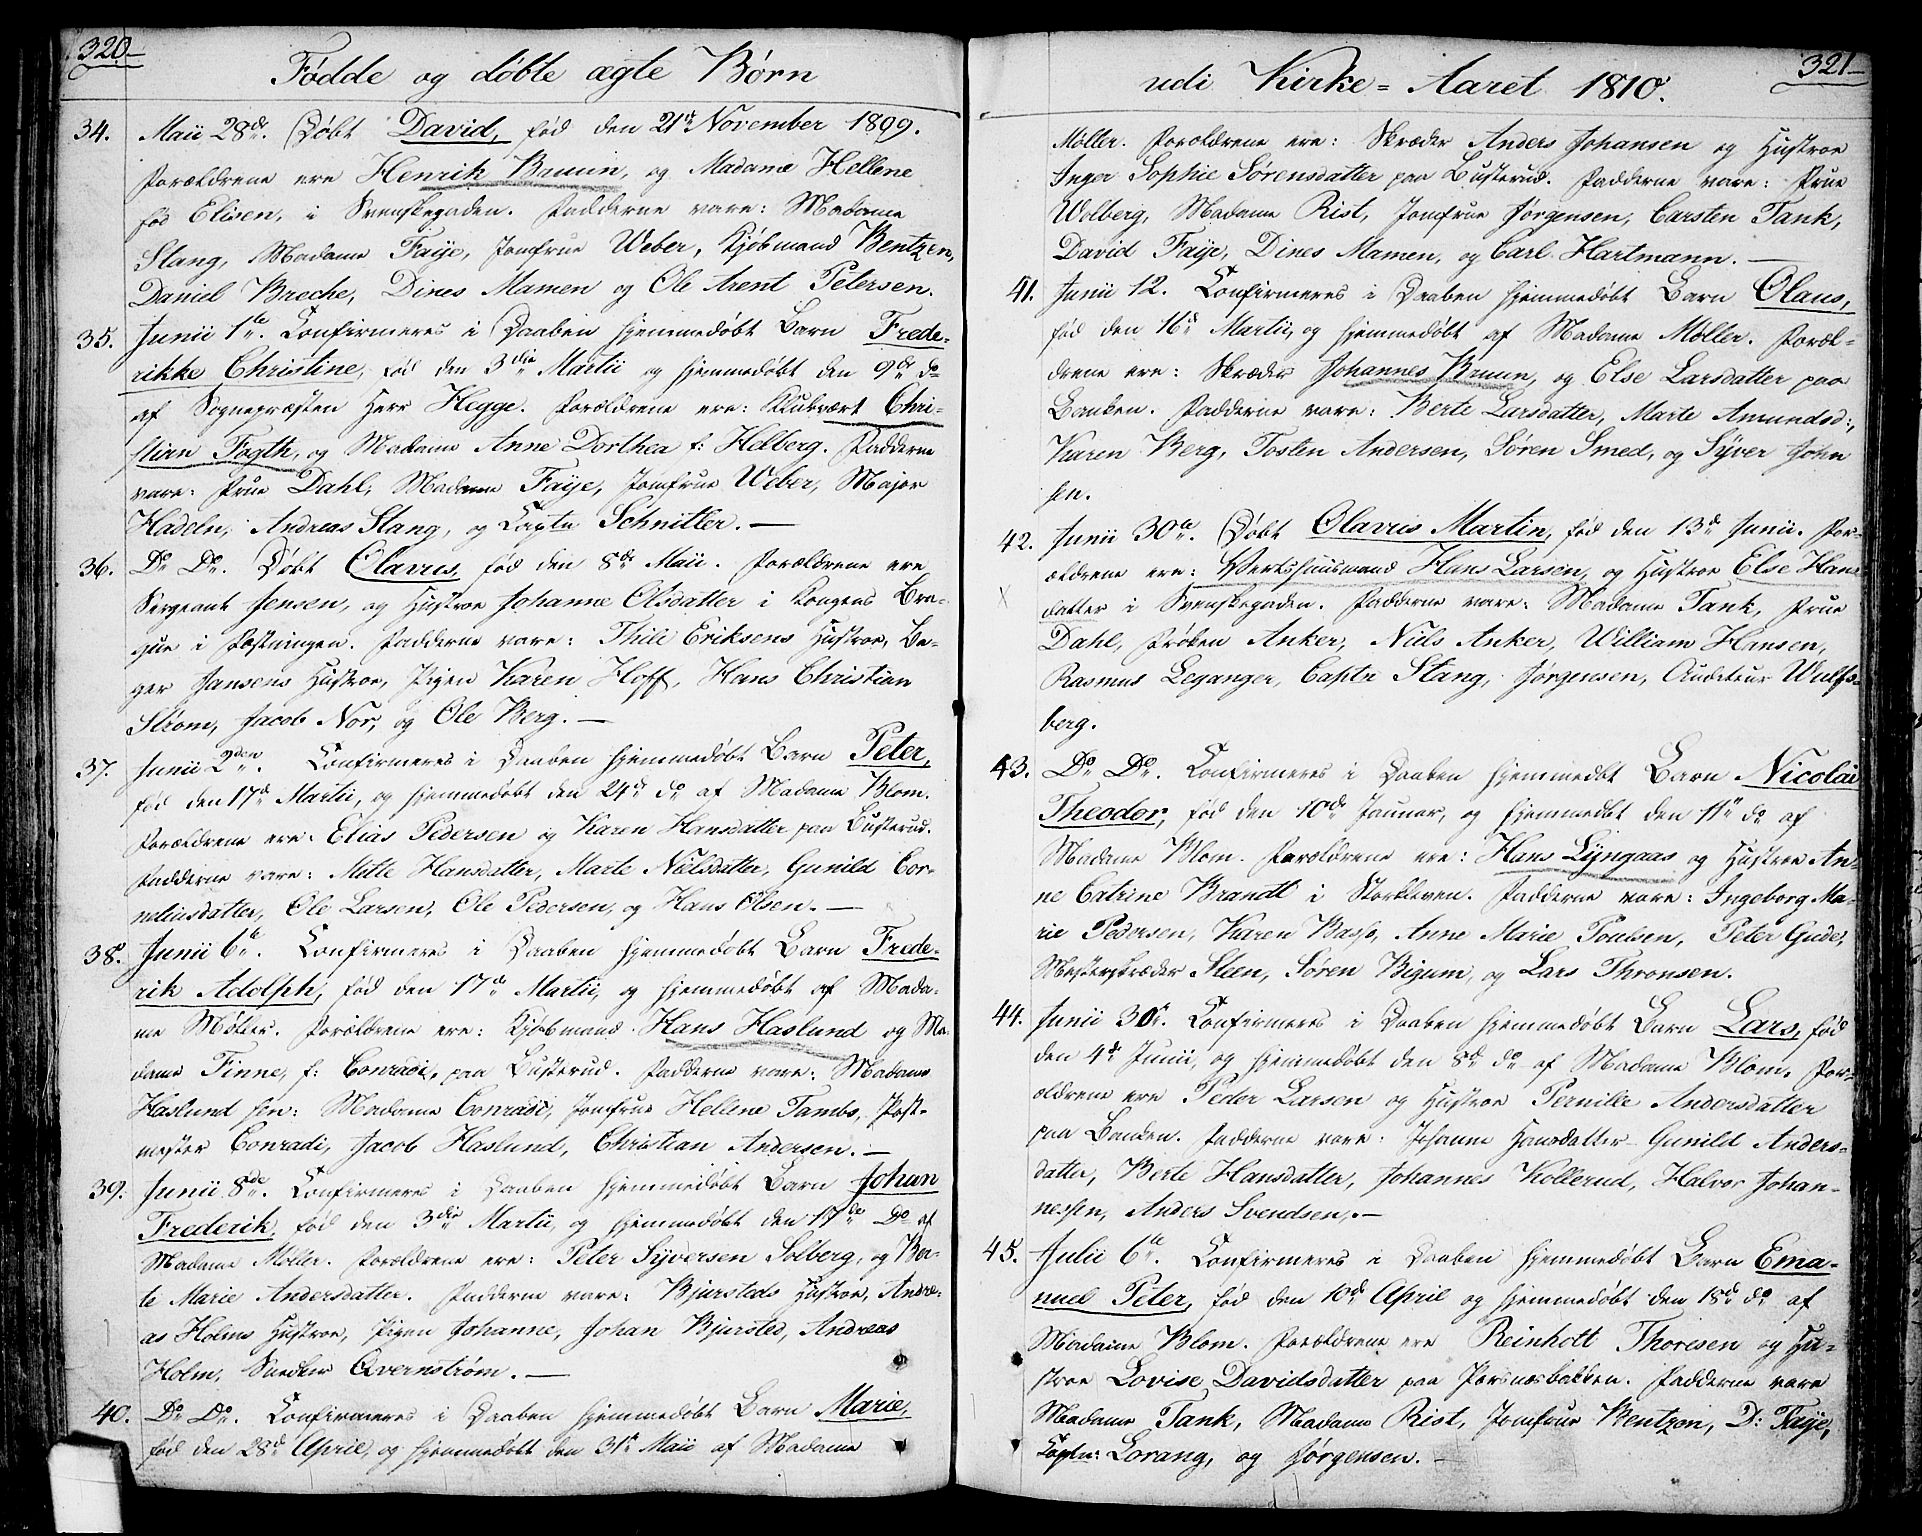 320
Födde og döbte ægte Børn
34. Maii 28de. Døbt David, fød den 21de November 1899.
Forældrene ere Henrik Bruun, og Madame Hellene
fød Elisen, i Svenskegaden. Fadderne vare: Madame
Stang, Madame Faÿe, Jomfrue Weber, Kjøbmand Bentzen,
Daniel Breche, Dines Mamen og Ole Arent Petersen.
35. Junii 1te. Confirmeres i Daaben hjemmedøbt Barn Frede-
rikke Christine, fød den 3die Martii og hjemmedøbt den 9de do
af Sognepræsten Herr Hegge. Forældrene ere: Chri-
stian Fogth, og Madame Anne Dorthea f: Helberg. Fadderne
vare: Frue Dahl, Madame Faÿe, Jomfrue Weber, Major
Hadeln, Andreas Stang, og Captn Schnitler. —
36. Do Do. Døbt Olavus, fød den 8de Maii. Forældrene ere
Sergeant Jensen, og Hustroe Johanne Olsdatter i Kongens Bra-
que i Fæstningen. Fadderne vare: Thüe Eriksens Hustroe, Ba-
ger Jansens Hustroe, Pigen Karen Hoff, Hans Christian
Strøm, Jacob Nor, og Ole Berg. —
37. Junii 2den. Confirmeres i Daaben hjemmedøbt Barn Peter,
fød den 17de Martii, og hjemmedøbt den 24de do af Madame Blom.
Forældrene ere: Elias Pedersen og Karen Hansdatter paa Busterud.
Fadderne vare: Mitte Hansdatter, Marte Nielsdatter, Gunild Cor-
neliusdatter, Ole Larsen, Ole Pedersen, og Hans Olsen. —
38. Junii 6te. Confirmeres i Daaben hjemmedøbt Barn Frede-
rik Adolph, fød den 17de Martii, og hjemmedøbt af Mada-
me Møller. Forældrene ere: Kjøbmand Hans Haslund og Ma-
dame Finne, f: Conradi, paa Busterud. Fadderne vare: Madame
Haslund sen: Madame Conradi, Jomfrue Hellene Tambs, Post-
mester Conradi, Jacob Haslund, Christian Andersen. —
39. Junii 8de. Confirmeres i Daaben hjemmedøbt Barn Johan
Frederik, fød den 3die Martii, og hjemmedøbt den 17de Do af
Madame Møller. Forældrene ere: Peter Syversen Solberg, og Ber-
te Marie Andersdatter. Fadderne vare: Bjursteds Hustroe, Andre-
as Holms Hustroe, Pigen Johanne, Johan Bjursted, Andreas
Holm, Snedker Qvernstrøm. —
40. Do Do. Confirmeres i Daaben hjemmedøbt Barn Marie,
fød den 28de April, og hjemmedøbt den 31te Maii af Madame
321
udi Kirke-Aaret 1810.
Møller. Forældrene ere: Skræder Anders Johansen og Hustroe
Inger Sophie Sørensdatter paa Busterud. Fadderne vare: Frue
Wolberg, Madame Rist, Jomfrue Jørgensen, Carsten Tank,
David Faÿe, Dines Mamen, og Carl Hartmann. —
41. Junii 12. Confirmeres i Daaben hjemmedøbt Barn Olaus,
fød den 16de Martii, og hjemmedøbt af Madame Møller. Foræl-
drene ere: Skræder Johannes Bruun, og Else Larsdatter paa
Banken. Fadderne vare: Berte Larsdatter, Marte Amundsd:,
Karen Berg, Tosten Andersen, Søren Smed, og Syver John
sen.
42. Junii 30te. Døbt Olavus Martin, fød den 13de Junii. For-
ældrene ere: Vertshuusmand Hans Larsen, og Hustroe Else Hans
datter i Svenskegaden. Fadderne vare: Madame Tank, Frue
Dahl, Frøken Anker, Niels Anker, William Hansen,
Rasmus Leganger, Captn Stang, Jørgensen, Auditeur Wulfs-
berg.
43. Do Do. Confirmeres i Daaben hjemmedøbt Barn Nicolai
Theodor, fød den 10de Januar, og hjemmedøbt den 11te do af
Madame Blom. Forældrene ere: Hans Lyngaas og Hustroe An-
ne Catrine Brandt i Storkleven. Fadderne vare: Ingeborg Ma-
rie Pedersen, Karen Basse, Anne Marie Poulsen, Peter Gude,
Mesterskræder Steen, Søren Bigum, og Lars Thronsen.
44. Junii 30te. Confirmeres i Daaben hjemmedøbt Barn Lars, fød
den 4de Junii, og hjemmedøbt den 8de do af Madame Blom. For-
ældrene ere Peder Larsen og Hustroe Pernille Andersdatter
paa Banken. Fadderne vare: Johanne Hansdatter Gunild Anders-
datter, Berte Hansdatter, Johannes Kollerud, Halvor Johan-
nessen, Anders Svendsen. —
45. Julii 6te. Confirmeres i Daaben hjemmedøbt Barn Ema-
nuel Peter, fød den 10de April og hjemmedøbt den 18de do af
Madame Blom. Forældrene ere Reinholt Thoresen og Hu-
stroe Lovise Davidsdatter paa Forsnæsbakken. Fadderne vare
Madame Tank, Madame Rist, Jomfrue Bentzen, D: Faÿe,
Captn: Lorang, og Jørgensen. —